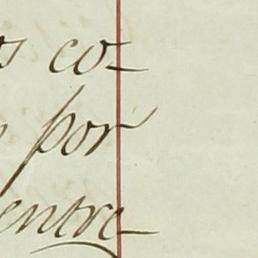 s co-
por
entre-